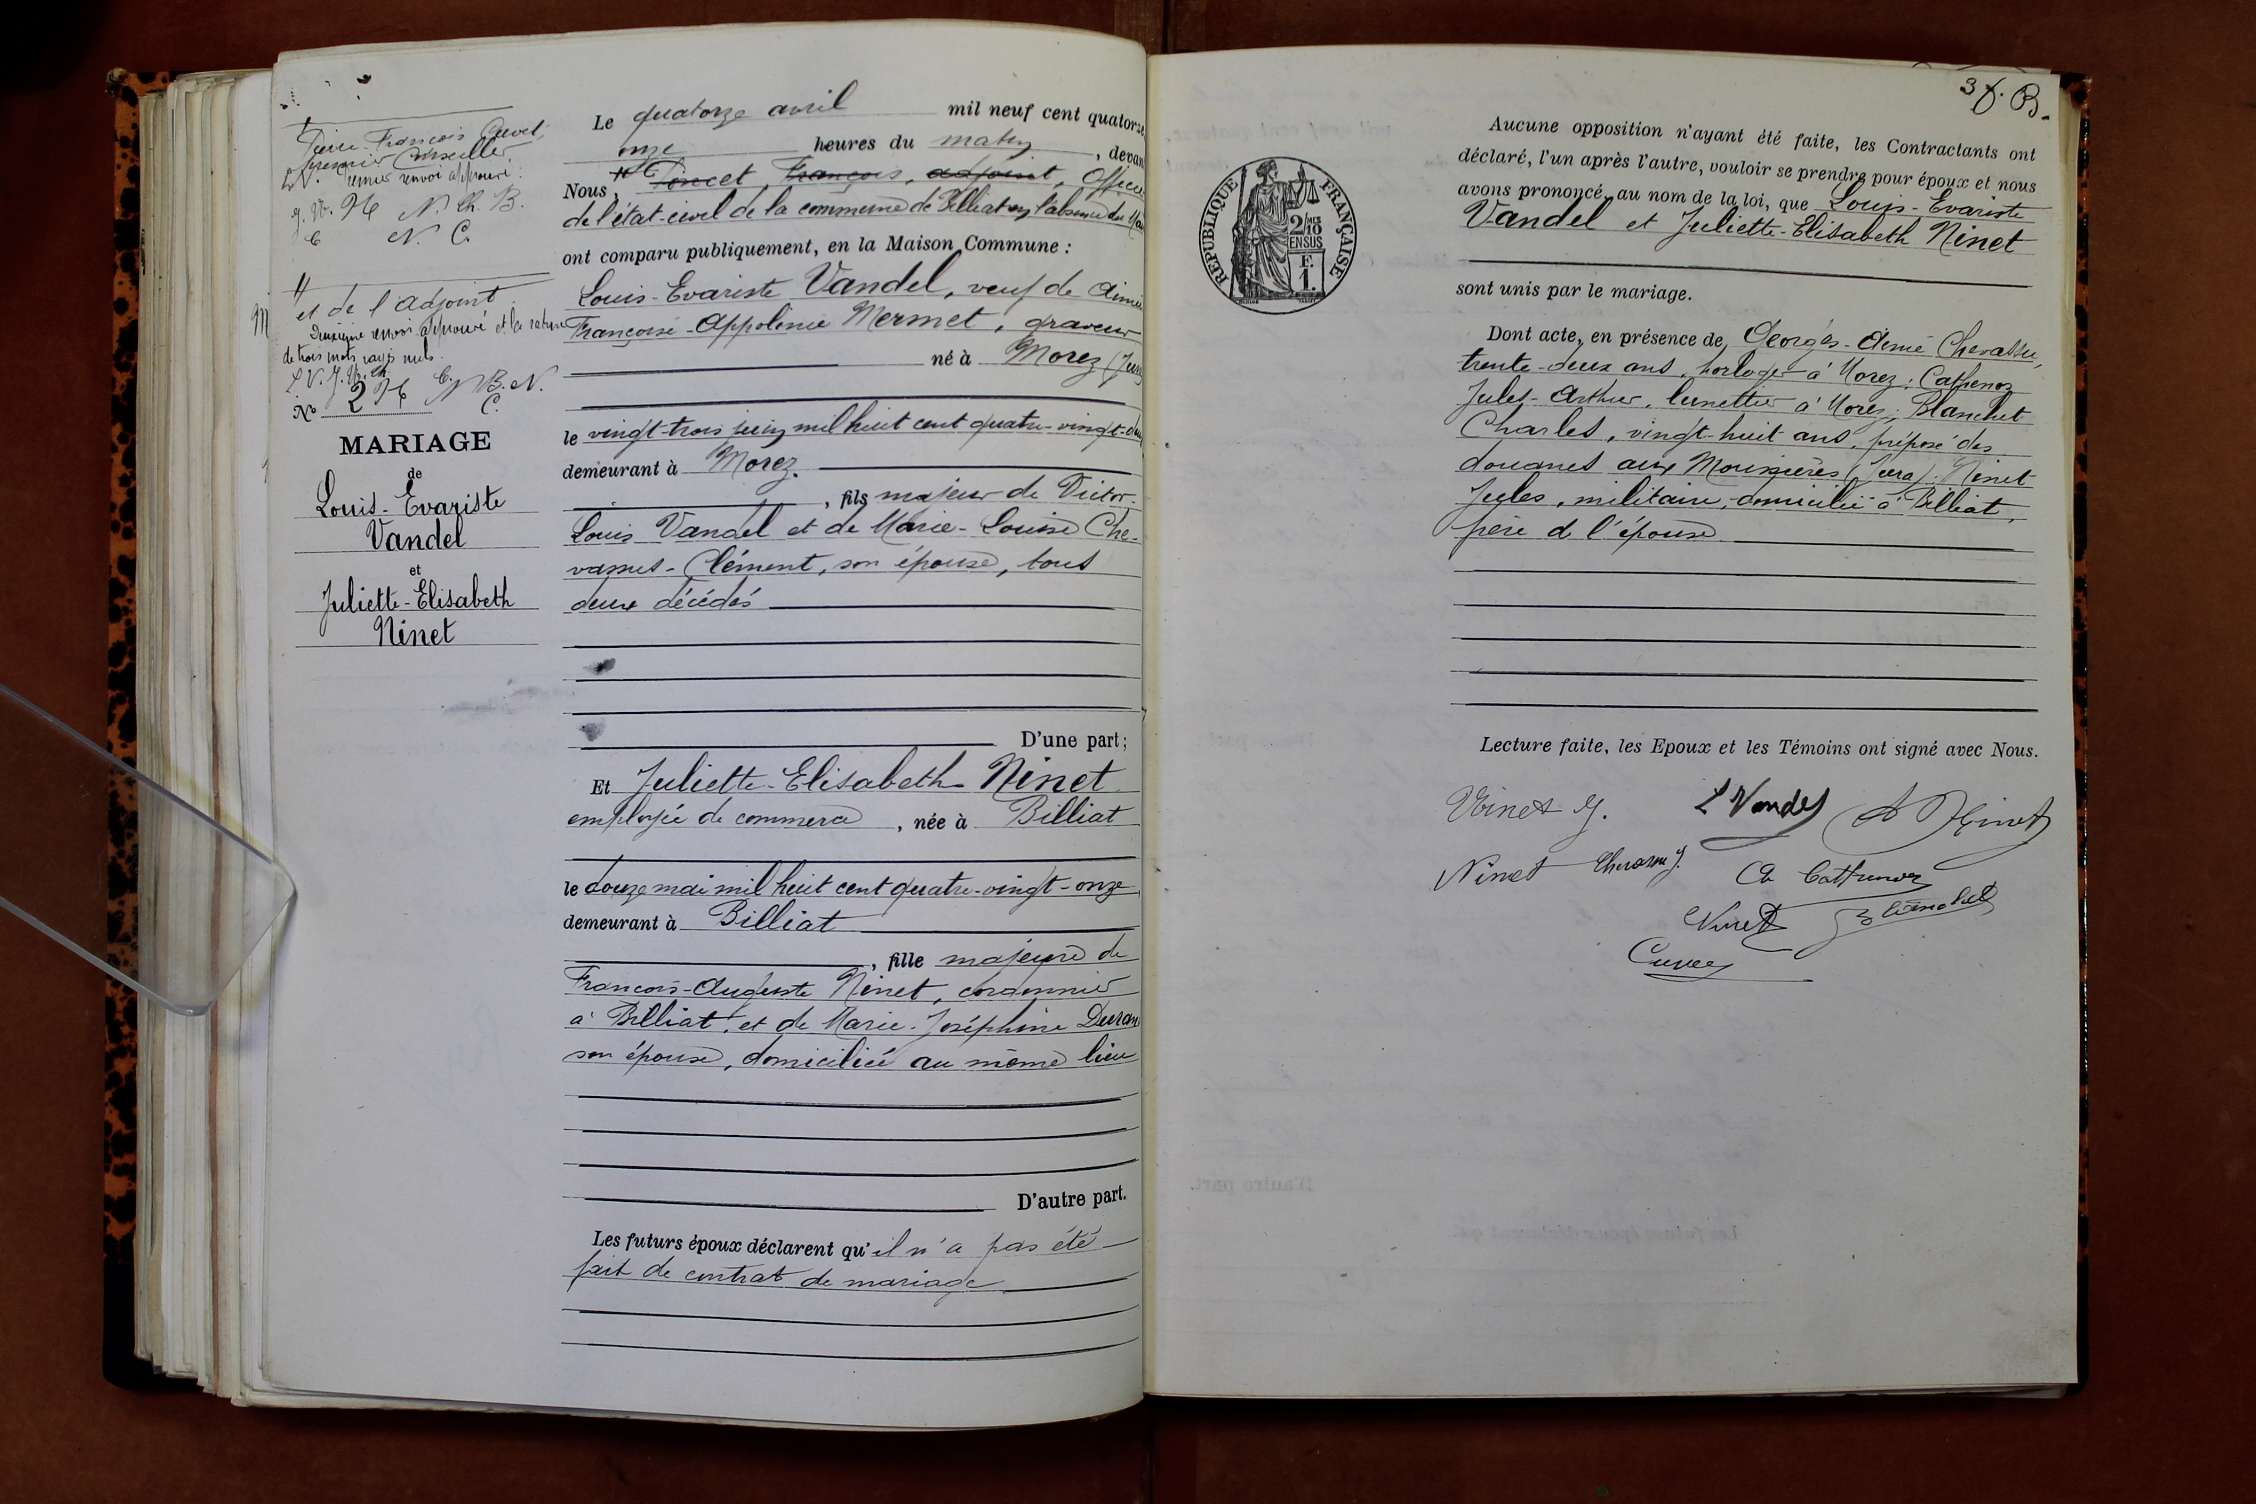 Pierre François Cuvet,
premier Conseiller.
L.V. 1er renvoi approuvé.
N. Ch. B.
C N. C.
et de l'adjoint
Deuxième renvoi approuvé et la rature
de trois mots rayés nuls.
L.V. J. N. Ch.
C. N B. N.
C.
No 2
MARIAGE
de
Louis-Evariste
Vandel
et
Juliette-Elisabeth
Ninet
Le quatorze avril mil neuf cent quatorze
onze heures du matin, devant
Nous, Poncet François, adjoint, Officier
de l'état-civil de la commune de Billiat en l'absence du Maire
ont comparu publiquement, en la Maison Commune :
Louis-Evariste Vandel, veuf de Aimée
Françoise-Appolonie Mermet, graveur
né à Morez (Jura
le vingt-trois juin mil huit cent quatre-vingt-deux
demeurant à Morez.
, fils majeur de Victor-
Louis Vandel et de Marie-Louise Che-
vassus-Clément, son épouse, tous
deux décédés
D'une part ;
Et Juliette-Elisabeth Ninet
employée de commerce, née à Billiat
le douze mai mil huit cent quatre-vingt-onze
demeurant à Billiat
, fille majeure de
François-Auguste Ninet, cordonnier
à Billiat, et de Marie-Joséphine Duran
son épouse, domiciliée au même lieu
D'autre part.
Les futurs époux déclarent qu'il n'a pas été
fait de contrat de mariage
REPUBLIQUE FRANÇAISE
2/10 MES
EN SUS
F.
1.
B.
Aucune opposition n'ayant été faite, les Contractants ont
déclaré, l'un après l'autre, vouloir se prendre pour époux et nous
avons prononcé, au nom de la loi, que Louis-Evariste
Vandel et Juliette-Elisabeth Ninet
sont unis par le mariage.
Dont acte, en présence de Georges-Aimé Chevassu,
trente-deux ans, horloger à Morez ; Cathenoz
Jules-Arthur, lunettier à Morez ; Blanchet
Charles, vingt-huit ans, préposé des
douanes aux Moussières (Jura) ; Ninet
Jules, militaire, domicilié à Billiat,
père d l'épouse
Lecture faite, les Epoux et les Témoins ont signé avec Nous.
Ninet J. L Vandel A Ninet
Ninet Chevassu G. Cathenoz
Ninet Blanchet
Cuvet